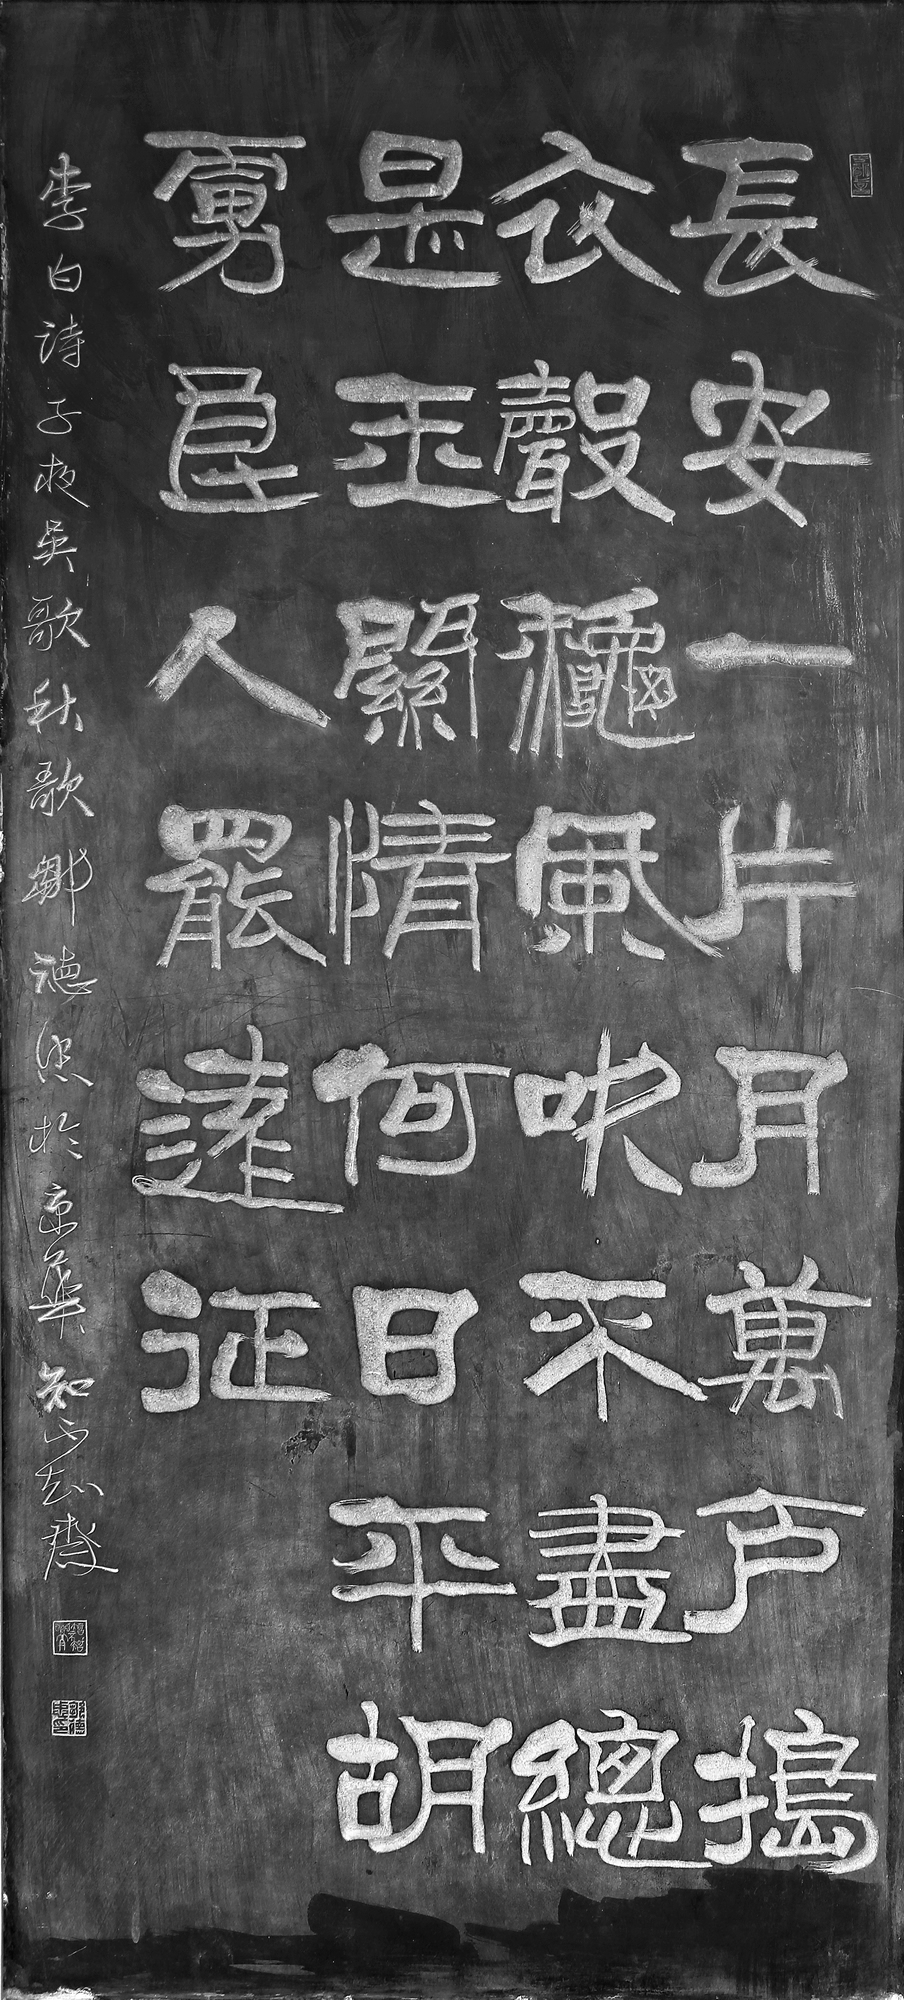 長安一片月萬户搗
衣聲龝風吹不盡總
是玉關情何日平胡
虜良人罷遠征
李白诗子夜吴歌秋歌鄒德忠於京華知不知齋